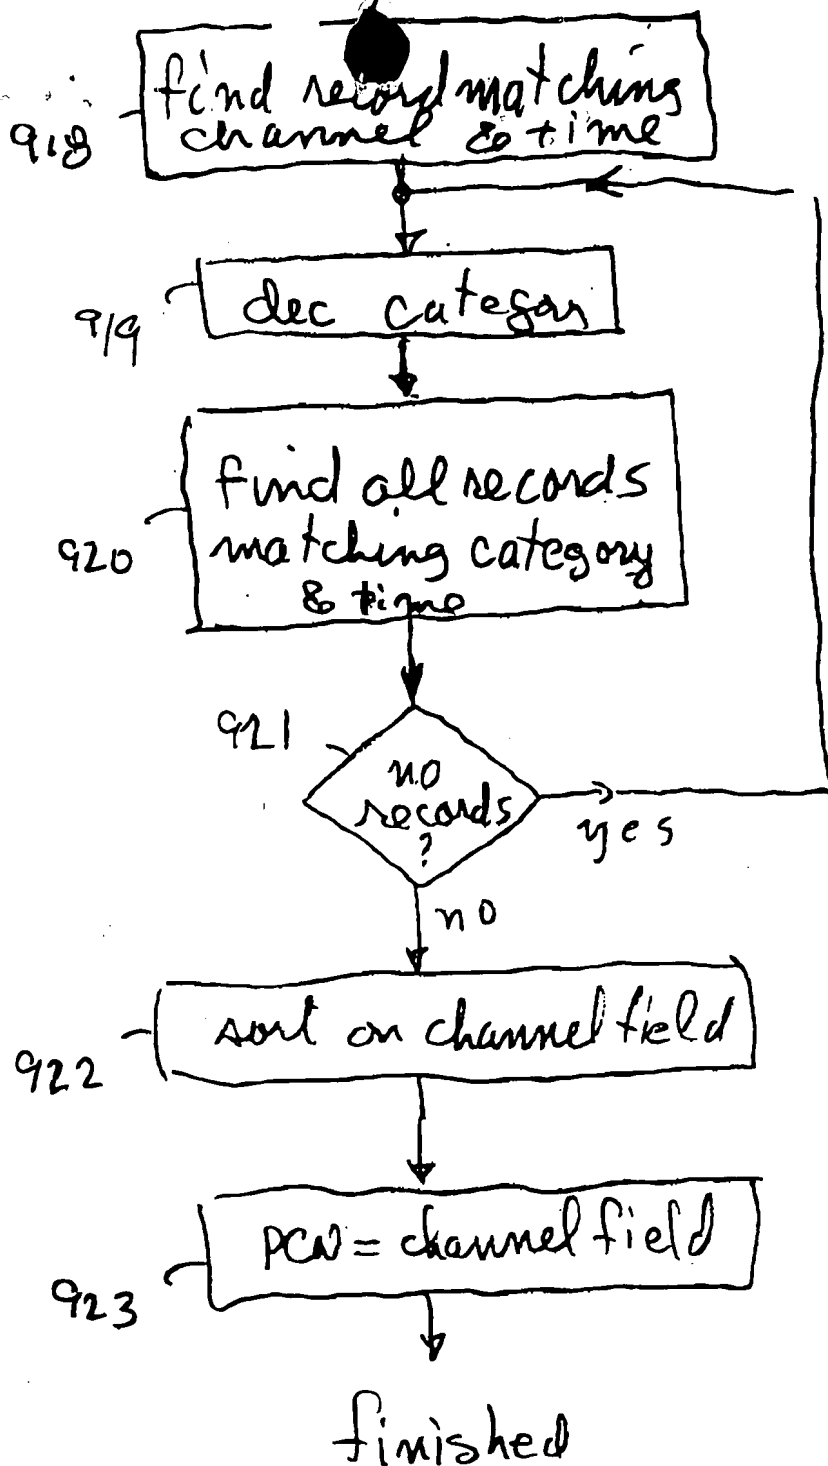 find record matching
channel & time
918
dec category
919
find all records
matching category
& time
920
921
no
records
?
yes
no
sort on channel field
922
PCN = channel field
923
finished